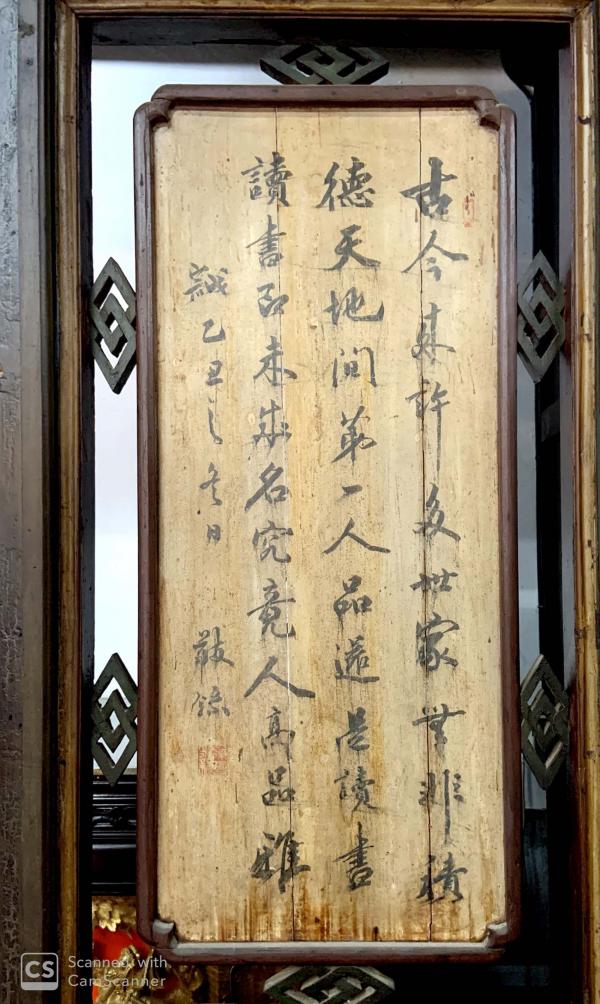 古今來許多世家無非積
德天地間第一人品還是讀書
讀書即未成名究竟人高品雅
乙丑之冬日 敬錄
CS Scanned with
CamScanner